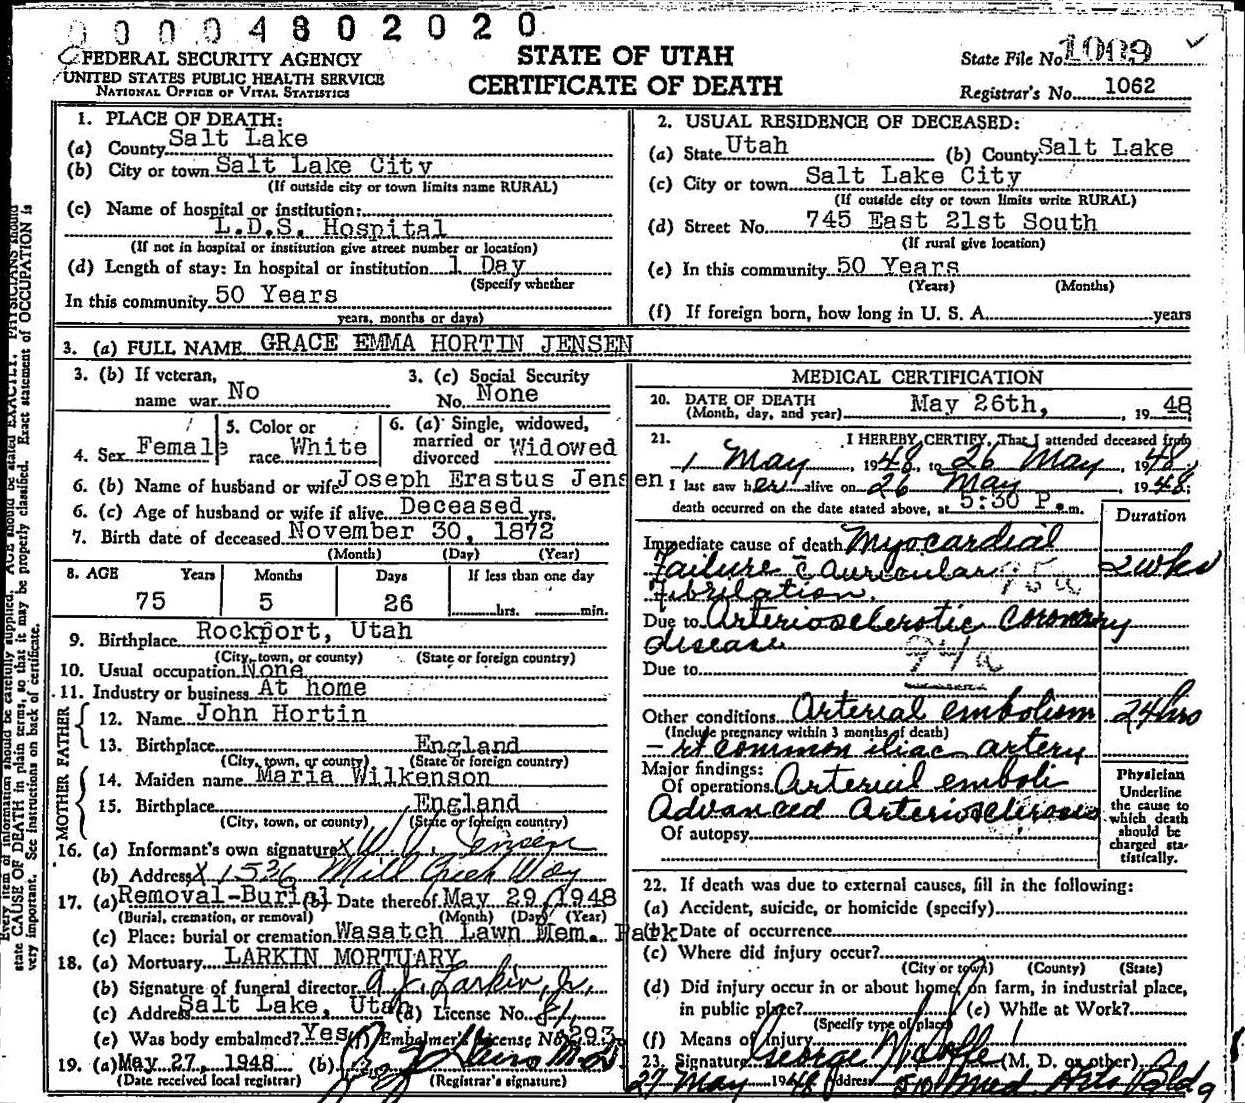 0 0 0 0 4 8 0 2 0 2 0
FEDERAL SECURITY AGENCY
UNITED STATES PUBLIC HEALTH SERVICE
NATIONAL OFFICE OF VITAL STATISTICS
STATE OF UTAH
CERTIFICATE OF DEATH
State File No. 1009
Registrar's No. 1062
1. PLACE OF DEATH:
(a) County Salt Lake
(b) City or town Salt Lake City
(If outside city or town limits name RURAL)
(c) Name of hospital or institution:
L.D.S. Hospital
(If not in hospital or institution give street number or location)
(d) Length of stay: In hospital or institution 1 Day
(Specify whether
In this community 50 Years
years, months or days)
2. USUAL RESIDENCE OF DECEASED:
(a) State Utah (b) County Salt Lake
(c) City or town Salt Lake City
(If outside city or town limits write RURAL)
(d) Street No. 745 East 21st South
(If rural give location)
(e) In this community 50 Years
(Years) (Months)
(f) If foreign born, how long in U. S. A. years
3. (a) FULL NAME GRACE EMMA HORTIN JENSEN
3. (b) If veteran, name war No
3. (c) Social Security No. None
4. Sex Female
5. Color or race White
6. (a) Single, widowed, married or divorced Widowed
6. (b) Name of husband or wife Joseph Erastus Jensen
6. (c) Age of husband or wife if alive Deceased yrs.
7. Birth date of deceased November 30, 1872
(Month) (Day) (Year)
8. AGE Years Months Days If less than one day
75 5 26 hrs. min.
9. Birthplace Rockport, Utah
(City, town, or county) (State or foreign country)
10. Usual occupation None
11. Industry or business At home
FATHER
12. Name John Hortin
13. Birthplace England
(City, town, or county) (State or foreign country)
MOTHER
14. Maiden name Maria Wilkenson
15. Birthplace England
(City, town, or county) (State or foreign country)
16. (a) Informant's own signature x W. J. Jensen
(b) Address x 1536 Mill Creek Way
17. (a) Removal-Burial (b) Date thereof May 29, 1948
(Burial, cremation, or removal) (Month) (Day) (Year)
(c) Place: burial or cremation Wasatch Lawn Mem. Park
18. (a) Mortuary LARKIN MORTUARY
(b) Signature of funeral director A. J. Larkin, Jr.
(c) Address Salt Lake, Utah (d) License No. 81
(e) Was body embalmed? Yes (f) Embalmer's License No. 293
19. (a) May 27, 1948 (b)
(Date received local registrar) (Registrar's signature)
MEDICAL CERTIFICATION
20. DATE OF DEATH
(Month, day, and year) May 26th, 19 48
21. I HEREBY CERTIFY, That I attended deceased from
1 May, 1948, to 26 May, 1948,
I last saw her alive on 26 May, 1948;
death occurred on the date stated above, at 5:30 P.m.
Duration
Immediate cause of death Myocardial
Failure c̄ auricular 95a 2 wks
Fibrilation.
Due to Arteriosclerotic coronary
disease 94a
Due to
Other conditions Arterial embolism 24 hrs
(Include pregnancy within 3 months of death)
- rt common iliac artery
Major findings:
Of operations Arterial emboli
Advanced Arteriosclerosis
Of autopsy
Physician
Underline
the cause to
which death
should be
charged sta-
tistically.
22. If death was due to external causes, fill in the following:
(a) Accident, suicide, or homicide (specify)
(b) Date of occurrence
(c) Where did injury occur?
(City or town) (County) (State)
(d) Did injury occur in or about home, on farm, in industrial place,
in public place? (e) While at Work?
(Specify type of place)
(f) Means of Injury
23. Signature George (M. D. or other)
27 May 1948 Address 510 Med Arts Bldg
Every item of information should be carefully supplied. AGE should be stated EXACTLY. PHYSICIANS should
state CAUSE OF DEATH in plain terms, so that it may be properly classified. Exact statement of OCCUPATION is
very important. See instructions on back of certificate.